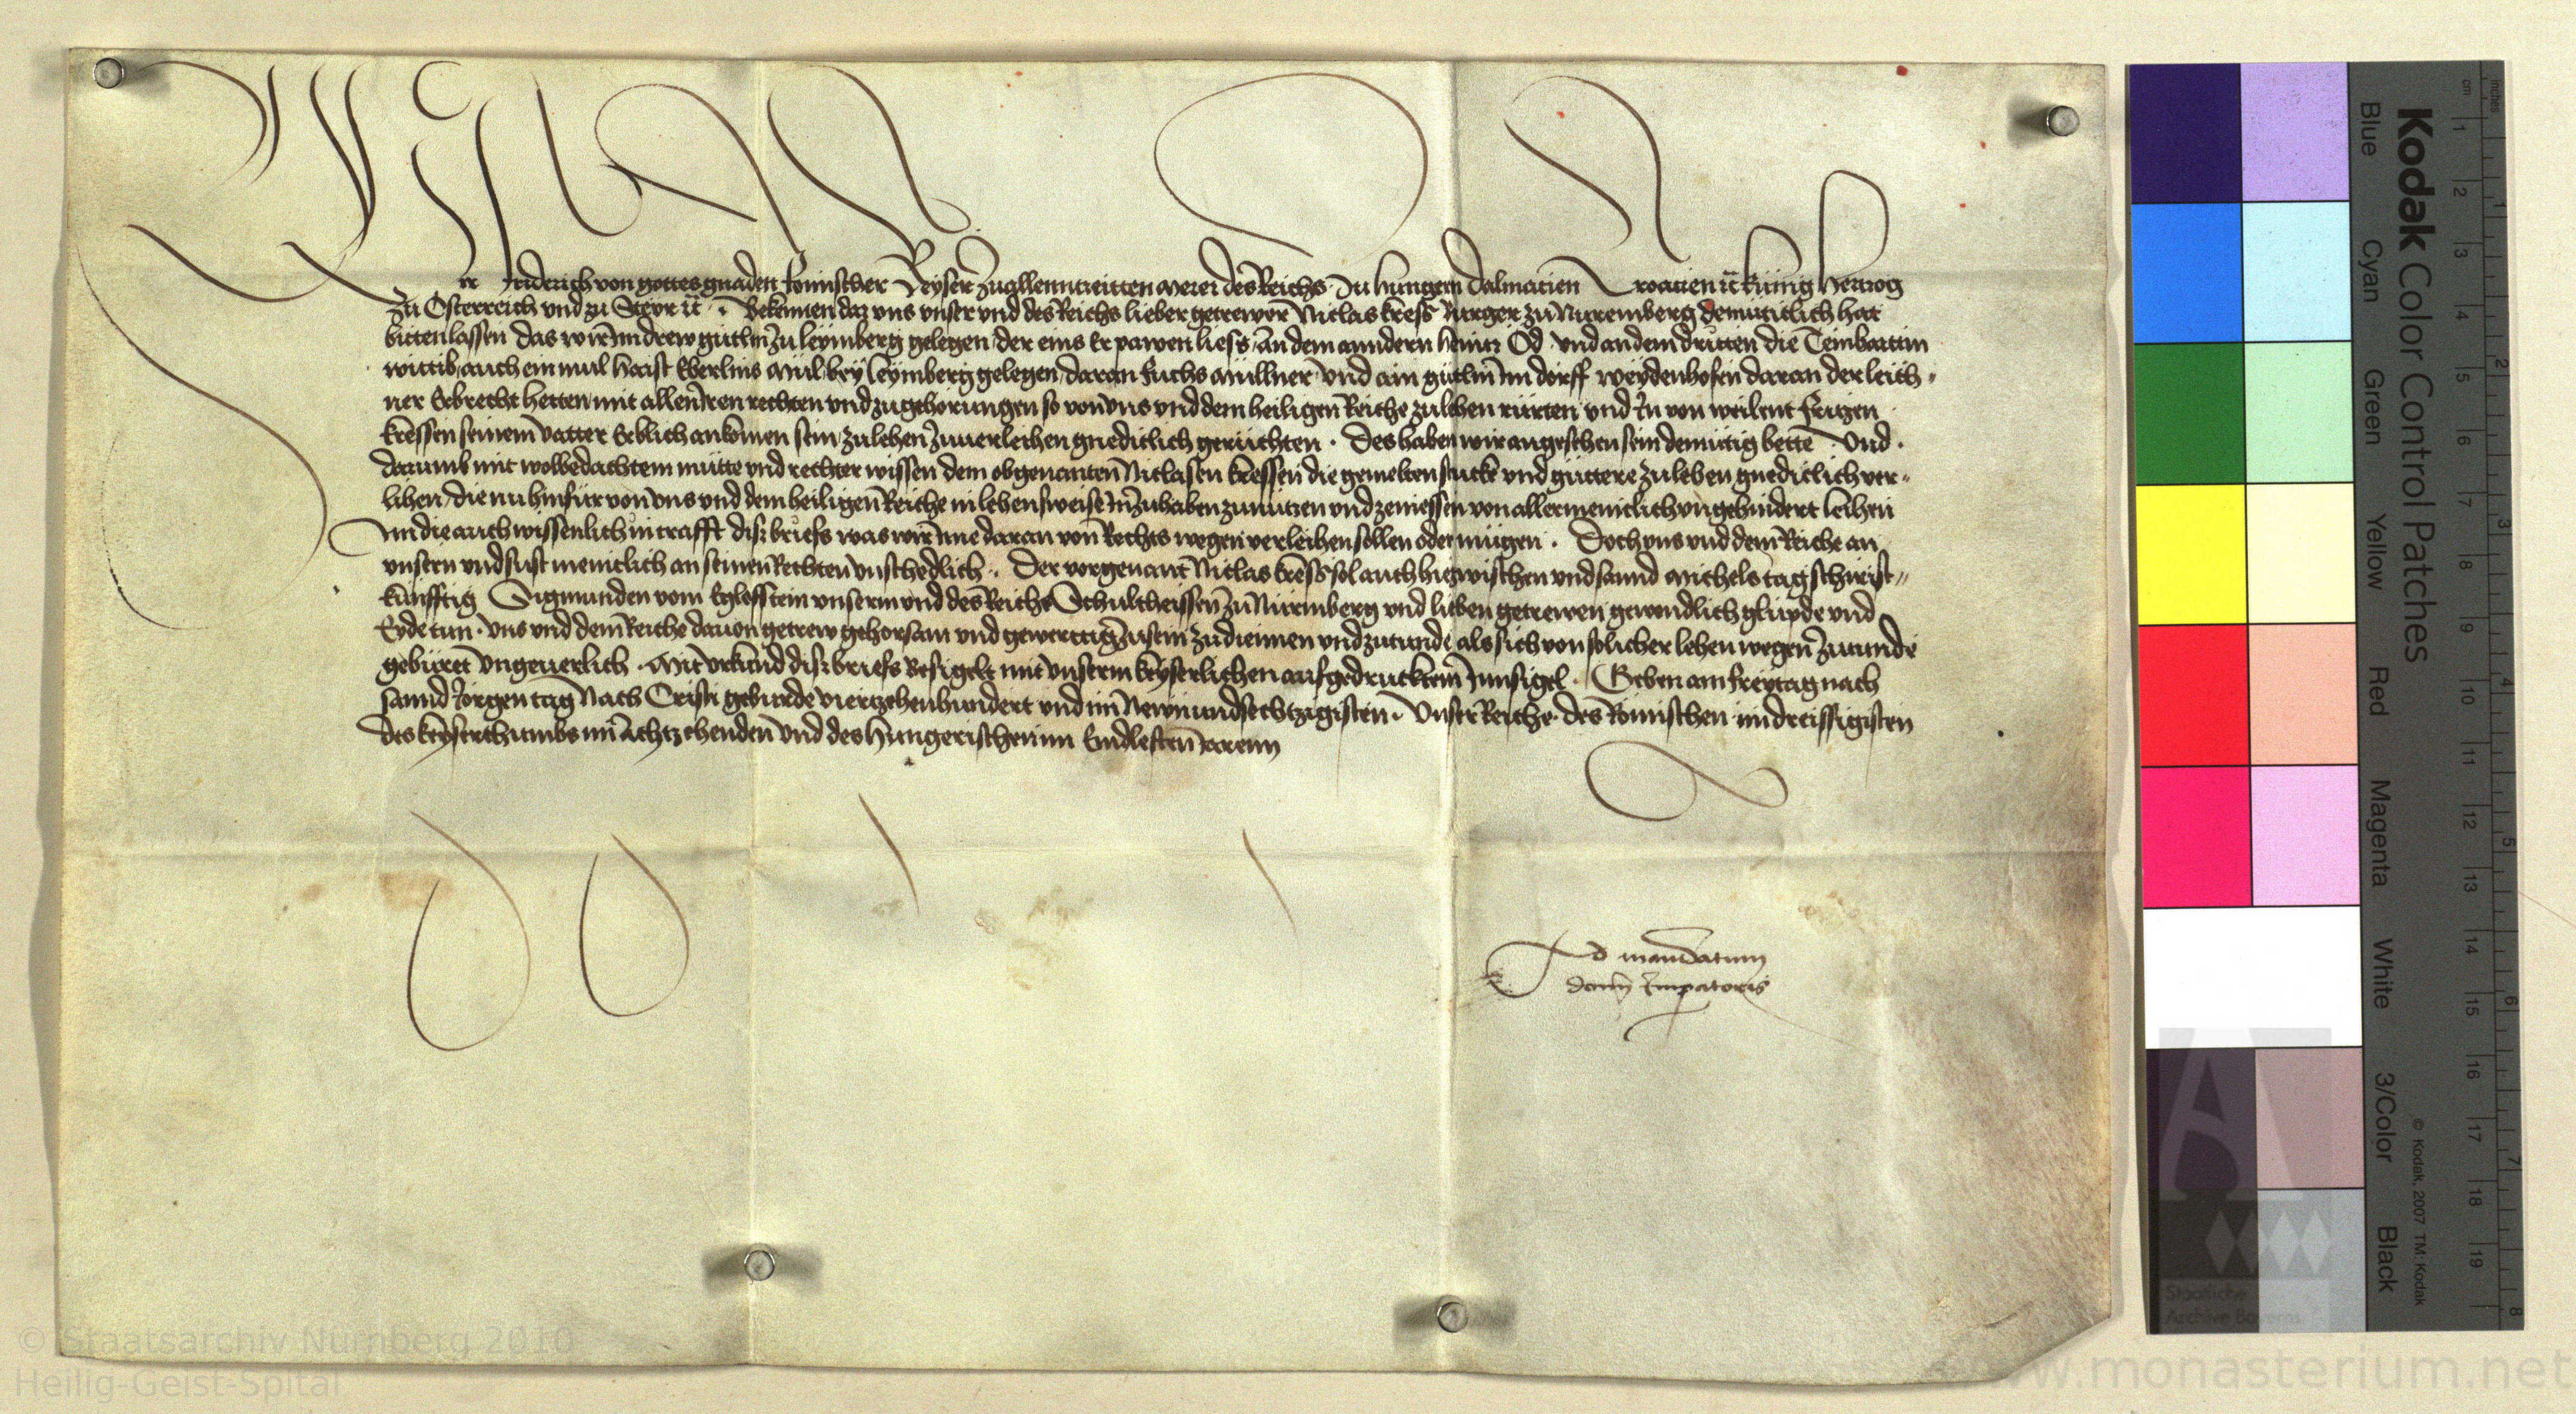 Wir Friderich von gottes gnaden Romischer Keyser zuallenntzeitten merer des Reichs zu hungern Dalmatien Croatien ꝛc kunig hertzog
zu Osterreich vnd zu Steyr ꝛc · Bekennen daz vns vnser vnd des Reichs lieber getrewer Niclas kress Burger zu Nuremberg demuticlich hat
bitten lassen das wir im drew gutlin zu leymberg gelegen der eins er pawen liess an dem anndern heintz Öd vnd an dem dritten die
wittib auch ein mul haist Eberlins mul bey leymberg gelegen daran fuchs mullner vnd ain gutlin im dorff weydenhofen daran der leich„
ner Erbrecht hetten mit allen iren rechten vnd zugehorungen so von vns vnd dem heiligen Reiche zulehen rürten vnd in von weilent fritzen
kressen seinem vatter Erblich ankomen sein zulehen zuuerleihen gnediclich geruchten · Des haben wir angesehen sein demütig bette Vnd
darumb mit wolbedachtem mutte vnd rechter wissen dem obgenanten Niclasen kressen die gemelten stucke vnd guttere zulehen gnediclich ver„
lihen die nu hinfür von vns vnd dem heiligen Reiche in lehensweise zuhaben zunutzen vnd zeniessen von allermeniclich vngehindert leihen
im die auch wissenlich in crafft diss briefs was wir ime daran von Rechts wegen verleihen sollen oder mügen · Doch vns vnd dem Reiche an
vnsern vnd sust meniclich an seinen Rechten vnschedlich · Der vorgenant Niclas kress sol auch hiezwischen vnd sannd Michels tag schirist„
künfftig Sigmunden vom Eglofstein vnserm vnd des Reichs Schultheissen zu Nuremberg vnd lieben getrewen gewondlich glupde vnd
Eyde tun · vns vnd dem Reiche dauon getrew gehorsam vnd gewerttig zusein zudiennen vnd zutunde als sich von solicher lehen wegen zutunde
gebüret vngeuerlich · Mit vrkund diss briefs Besigelt mit vnserm keyserlichen aufgedrucktem Innsigel · Geben am freytag nach
sannd Jorgen tag Nach Cristi geburde viertzehenhundert vnd im Newnundsechtzigisten · vnser Reiche des Romischen im dreissigisten
des keyserthumbs im Achtzehenden vnd des hungerischen im Eindlefften Jarenn
Ad mandatum
domini Imperatoris
Kodak Color Control Patches
Blue Cyan Green Yellow Red Magenta White 3/Color Black
© Kodak, 2007 TM: Kodak
cm 1 2 3 4 5 6 7 8 9 10 11 12 13 14 15 16 17 18 19
inches 1 2 3 4 5 6 7 8
Staatliche
Archive Bayerns
© Staatsarchiv Nürnberg 2010
Heilig-Geist-Spital
www.monasterium.net